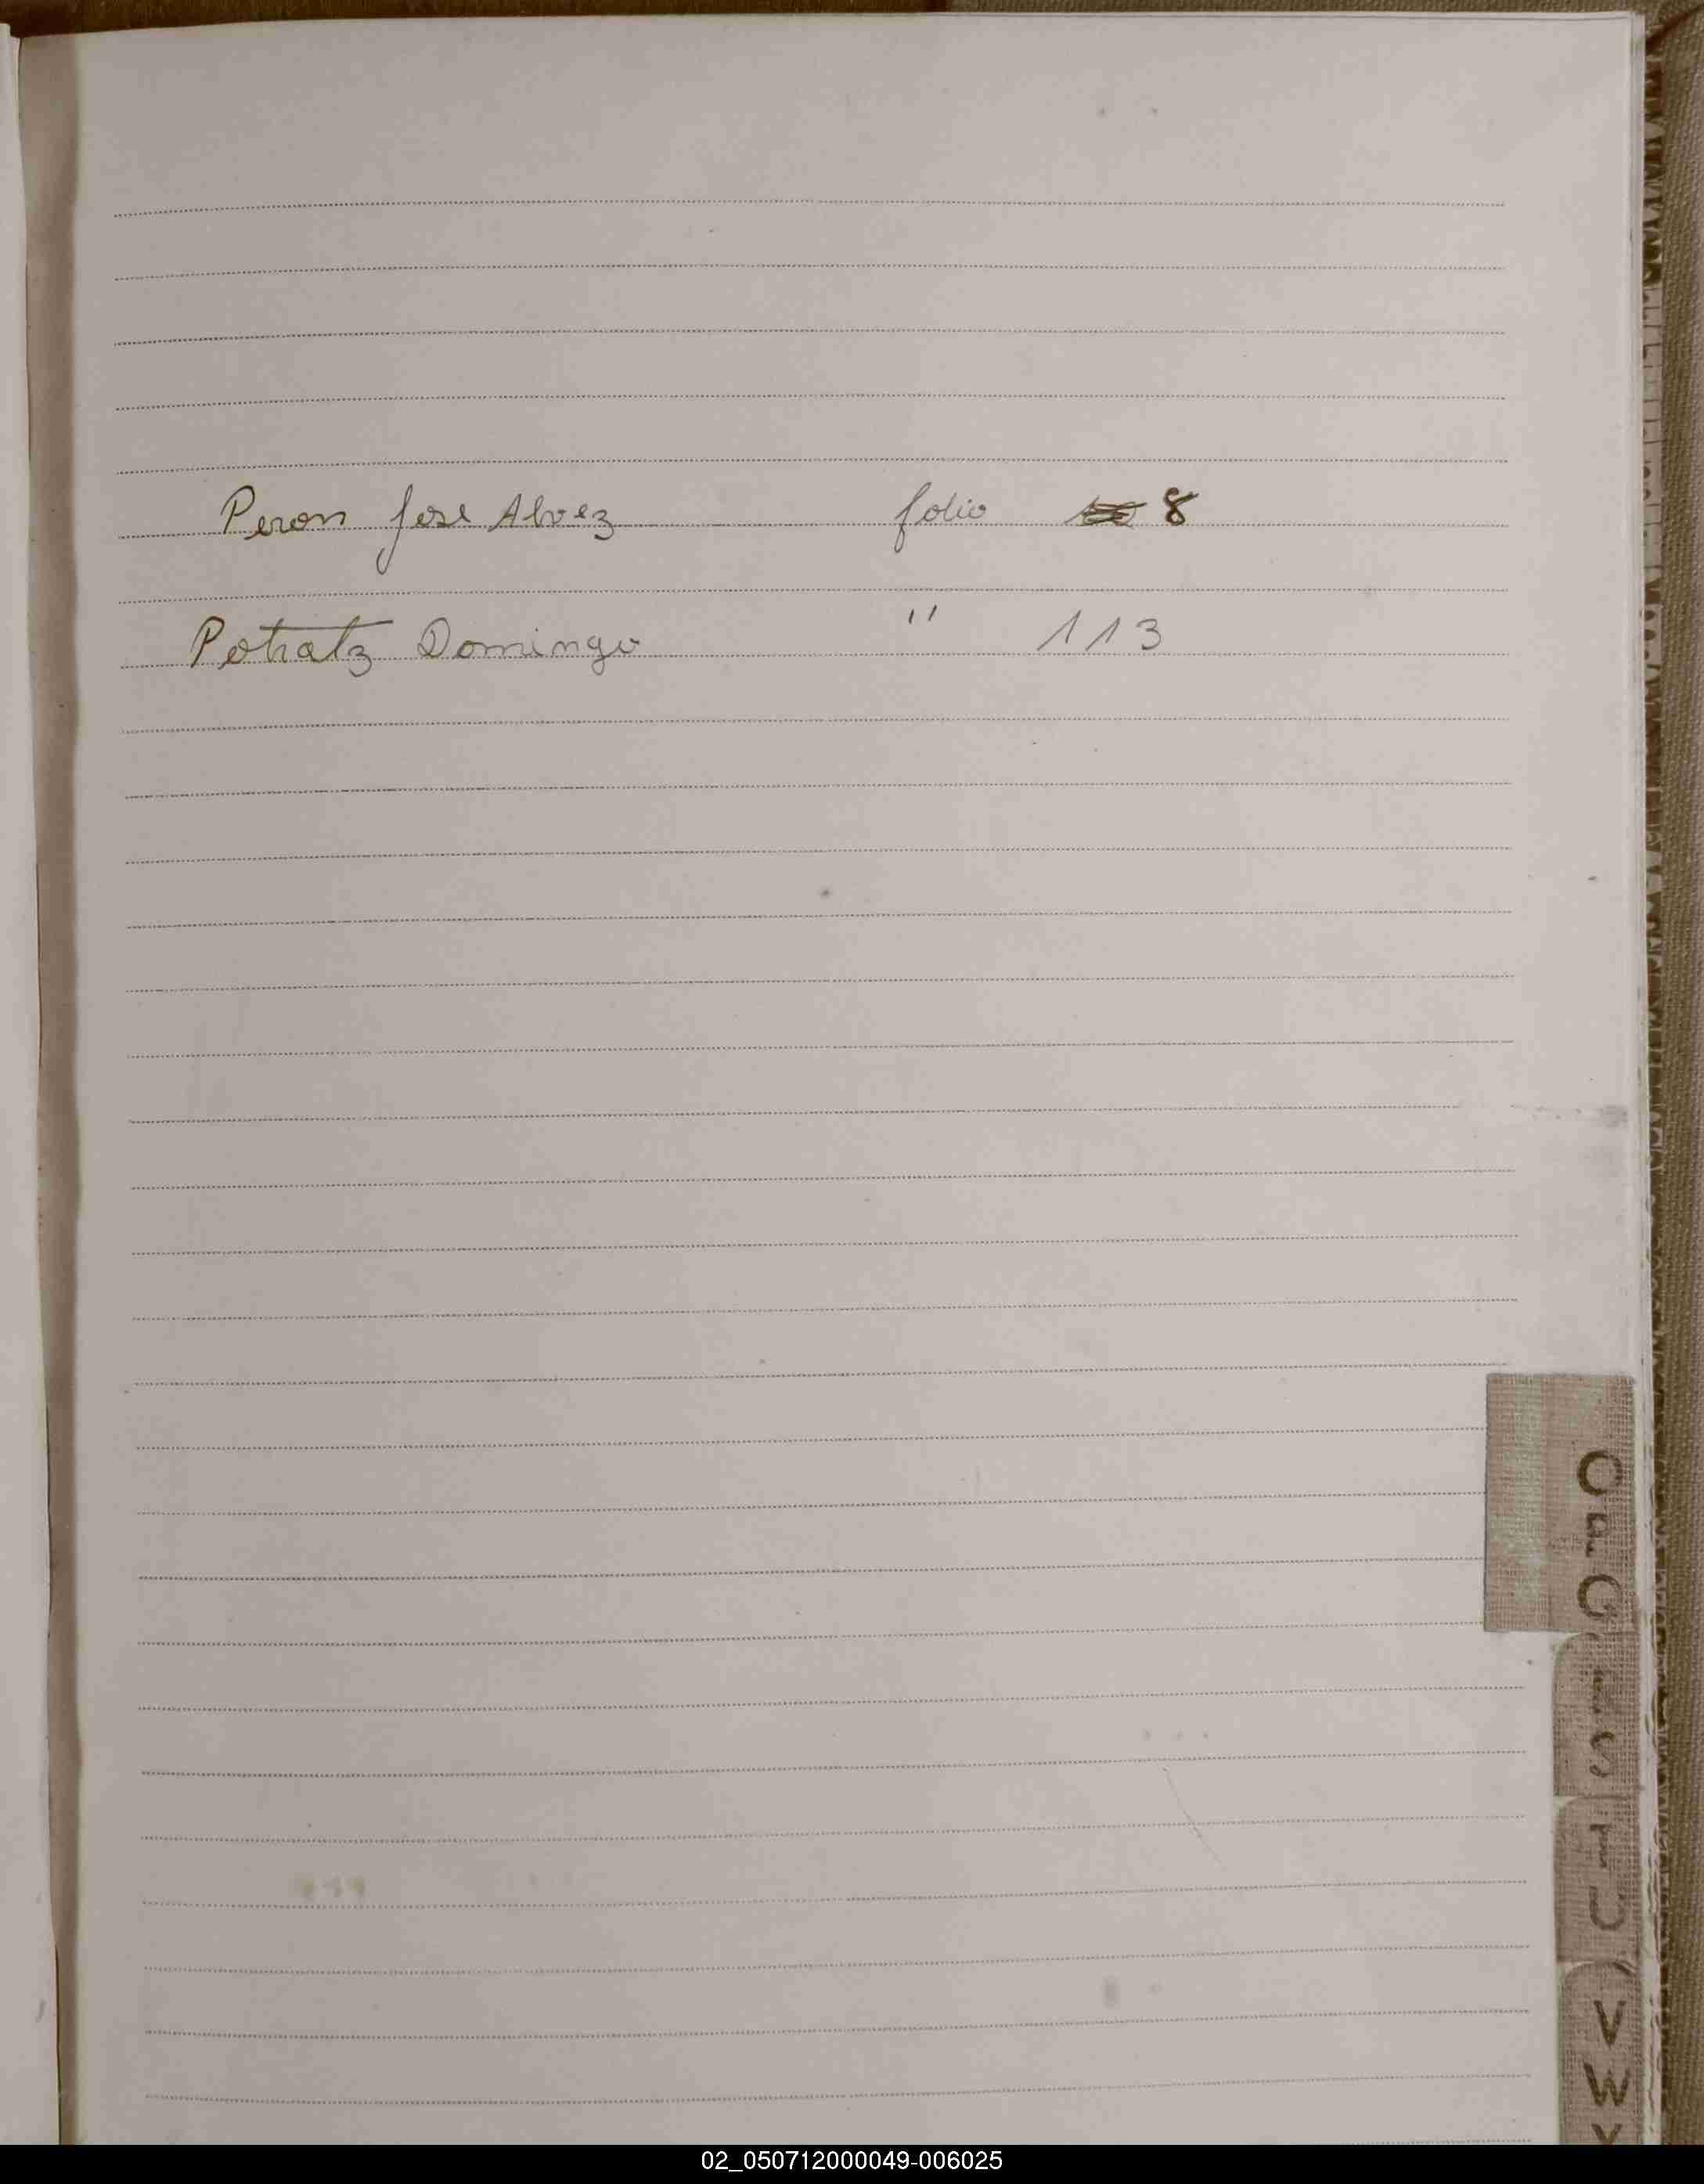 Peron Jose Alvez folio 8
Potratz Domingo " 113
O
P
Q
V
W
02_050712000049-006025